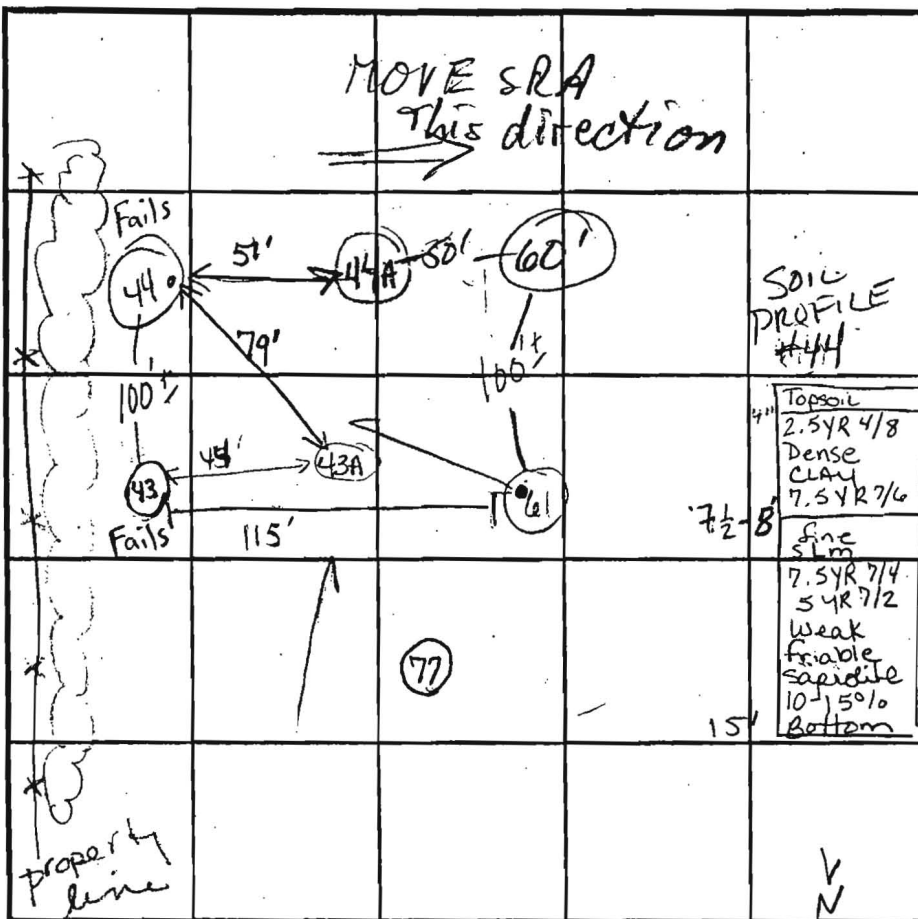 MOVE SRA
This direction
Fails
44
51'
44A
50'
60'
79'
100'±
100'±
43
45'
43A
61
Fails
115'
77
property
line
SOIL
PROFILE
#44
4"
Topsoil
2.5YR 4/8
Dense
CLAY
7.5YR 7/6
7½-8'
fine
SLm
7.5YR 7/4
5YR 7/2
Weak
friable
10-15%
15'
Bottom
N